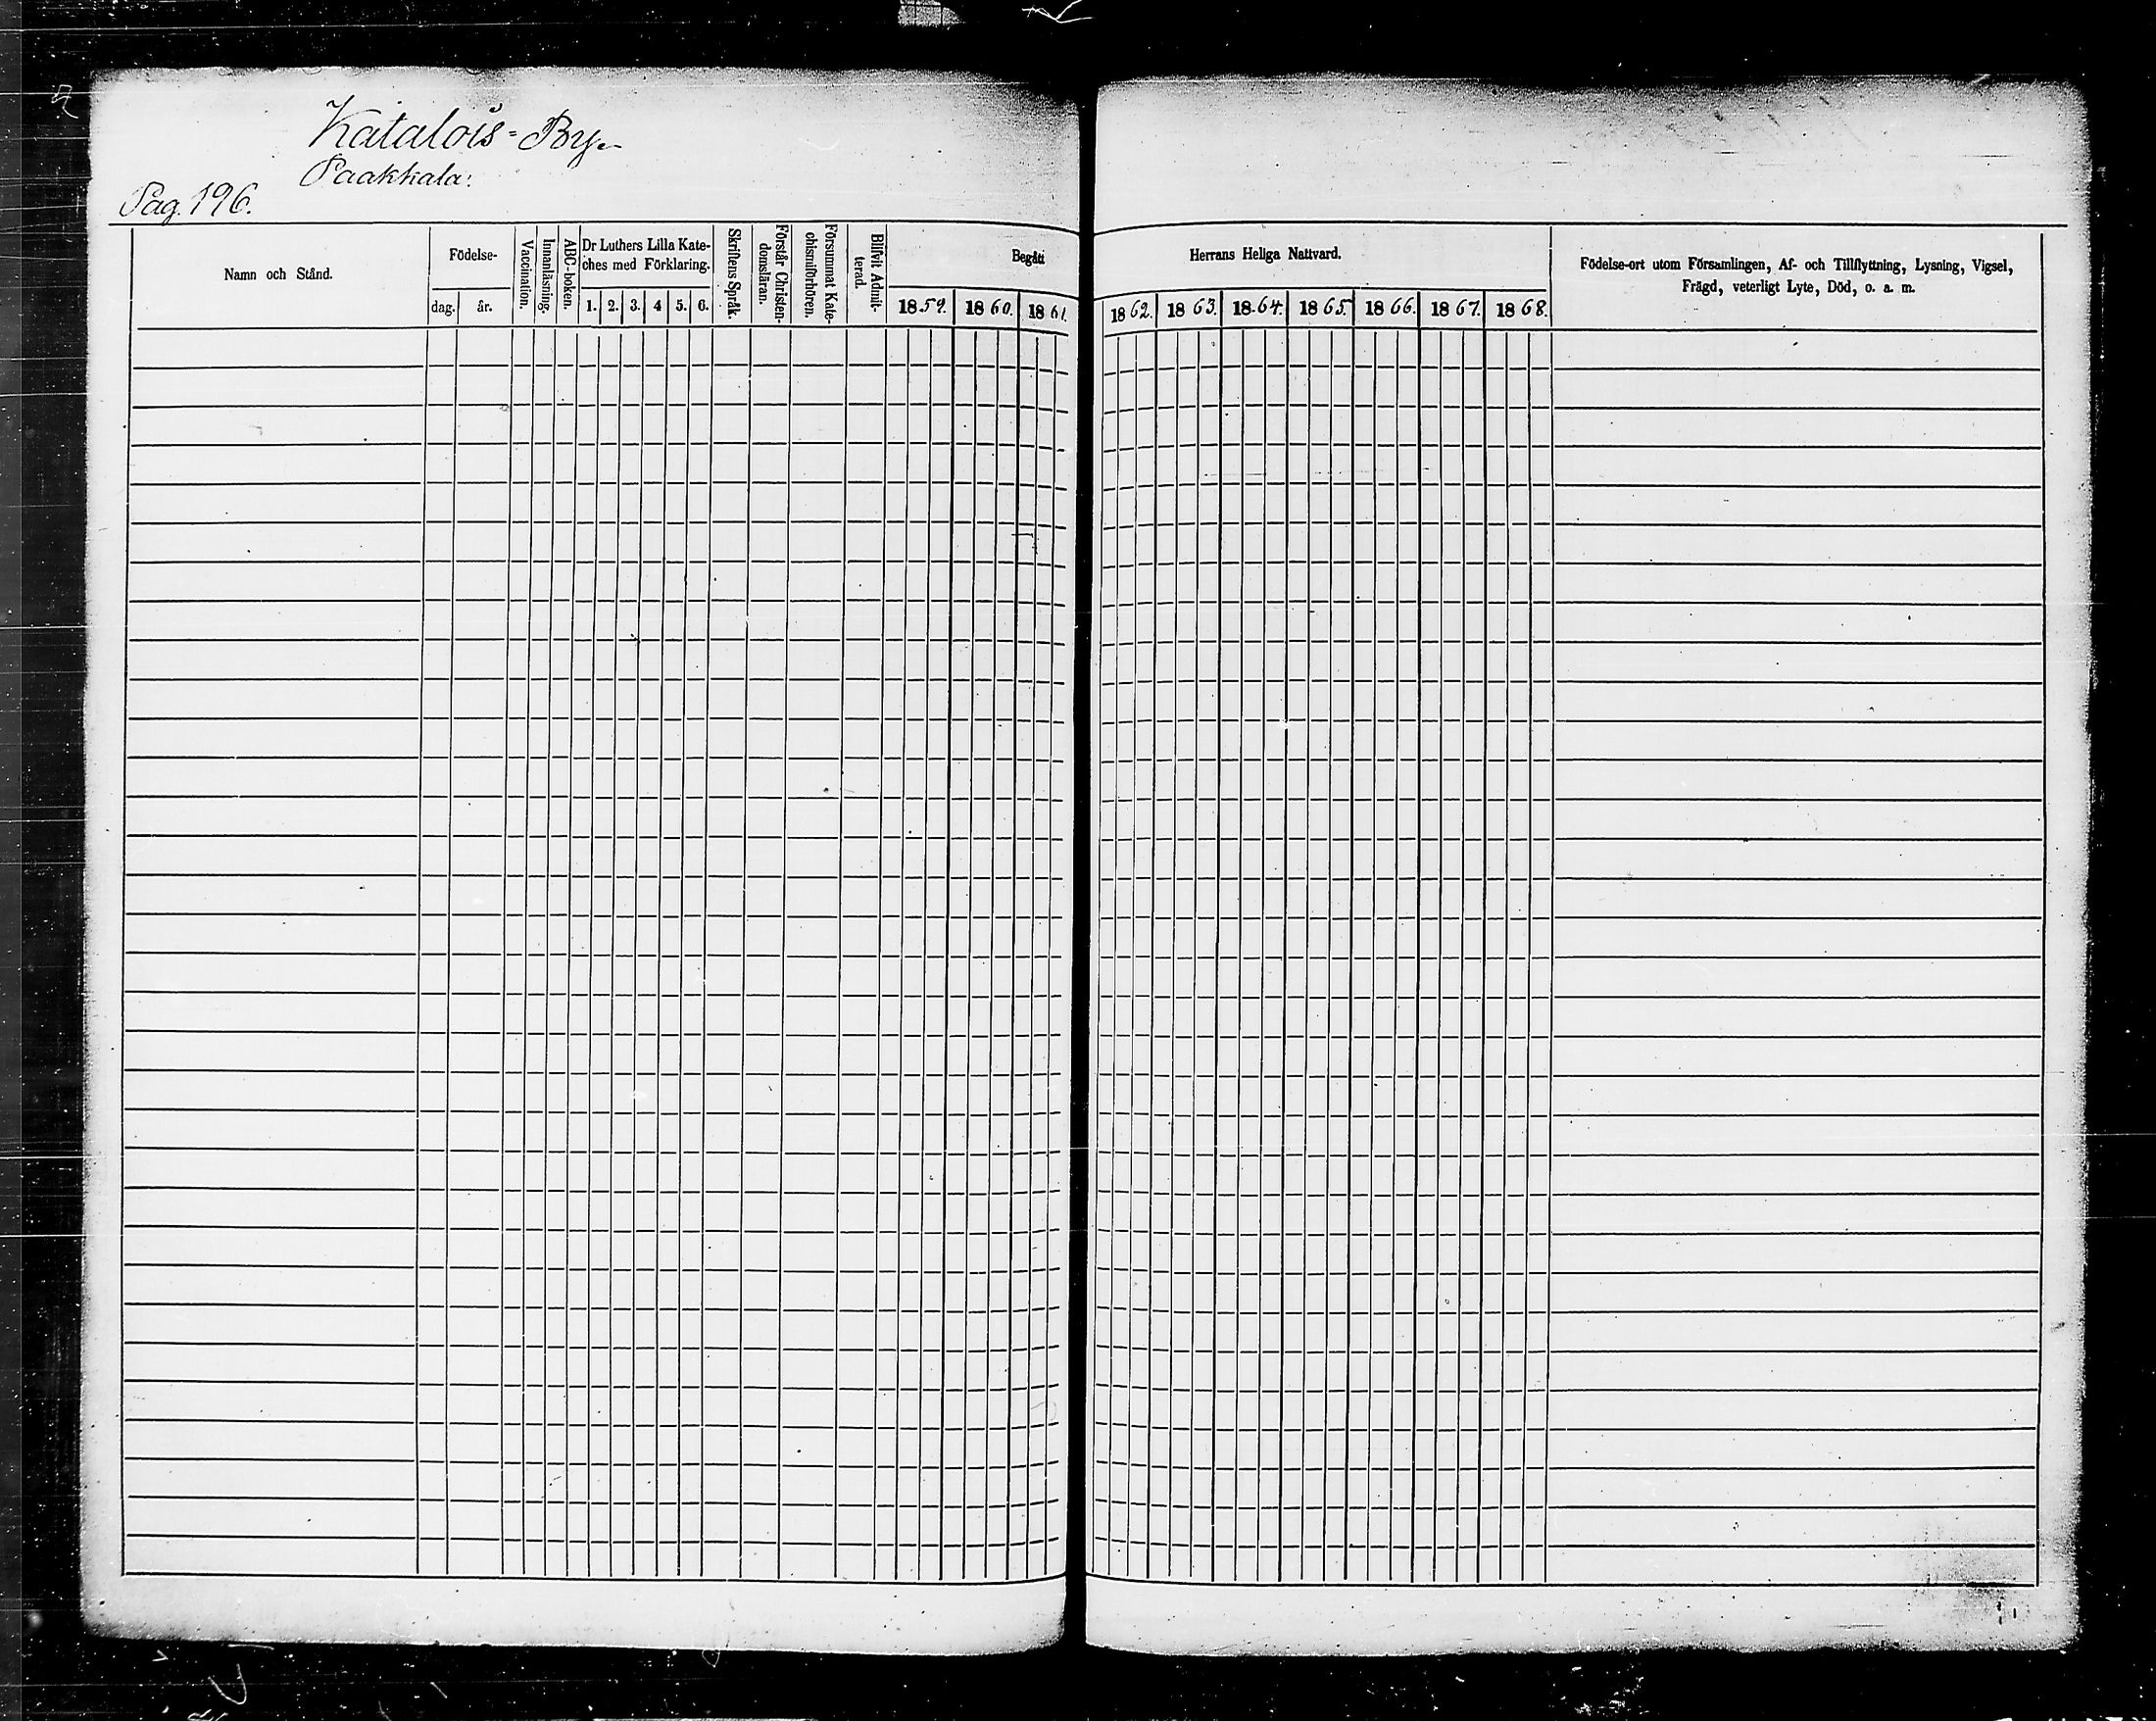 Katalois-By
Paakkala:
Pag. 196.
Namn och Stånd.
Födelse-
dag. år.
Vaccination.
Innanläsning.
ABC-boken.
Dr Luthers Lilla Kate-
ches med Förklaring.
1. 2. 3. 4 5. 6.
Skriftens Språk.
Förstår Christen-
domsläran.
Försummat Kate-
chismiförhören.
Blifvit Admit-
terad.
Begått Herrans Heliga Nattvard.
1859. 1860. 1861. 1862. 1863. 1864. 1865. 1866. 1867. 1868.
Födelse-ort utom Församlingen, Af- och Tillflyttning, Lysning, Vigsel,
Frägd, veterligt Lyte, Död, o. a. m.